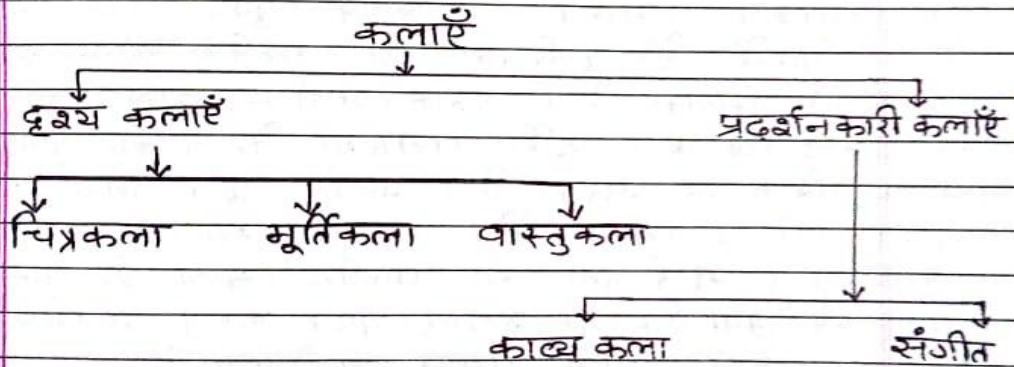 कलाएँ
दृश्य कलाएँ प्रदर्शनकारी कलाएँ
चित्रकला मूर्तिकला वास्तुकला
काव्य कला संगीत